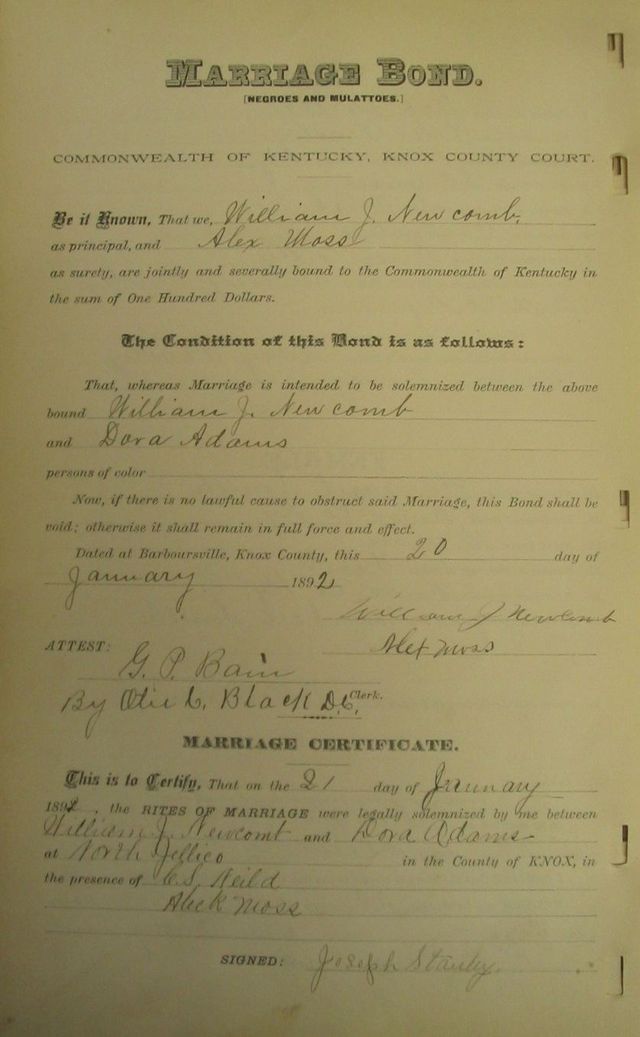 MARRIAGE BOND.
[NEGROES AND MULATTOES.]
COMMONWEALTH OF KENTUCKY, KNOX COUNTY COURT.
Be it Known, That we, William J. Newcomb,
as principal, and Alex Moss
as surety, are jointly and severally bound to the Commonwealth of Kentucky in
the sum of One Hundred Dollars.
The Condition of this Bond is as follows:
That, whereas Marriage is intended to be solemnized between the above
bound William J. Newcomb
and Dora Adams
persons of color
Now, if there is no lawful cause to obstruct said Marriage, this Bond shall be
void; otherwise it shall remain in full force and effect.
Dated at Barboursville, Knox County, this 20 day of
January 1892
William J Newcomb
ATTEST: Alex Moss
G. P. Bain
By Black D.C. Clerk.
MARRIAGE CERTIFICATE.
This is to Certify, That on the 21 day of January
1892, the RITES OF MARRIAGE were legally solemnized by me between
William J. Newcomb and Dora Adams
at North Jellico in the County of KNOX, in
the presence of
Aleck Moss
SIGNED: Joseph Stanley.